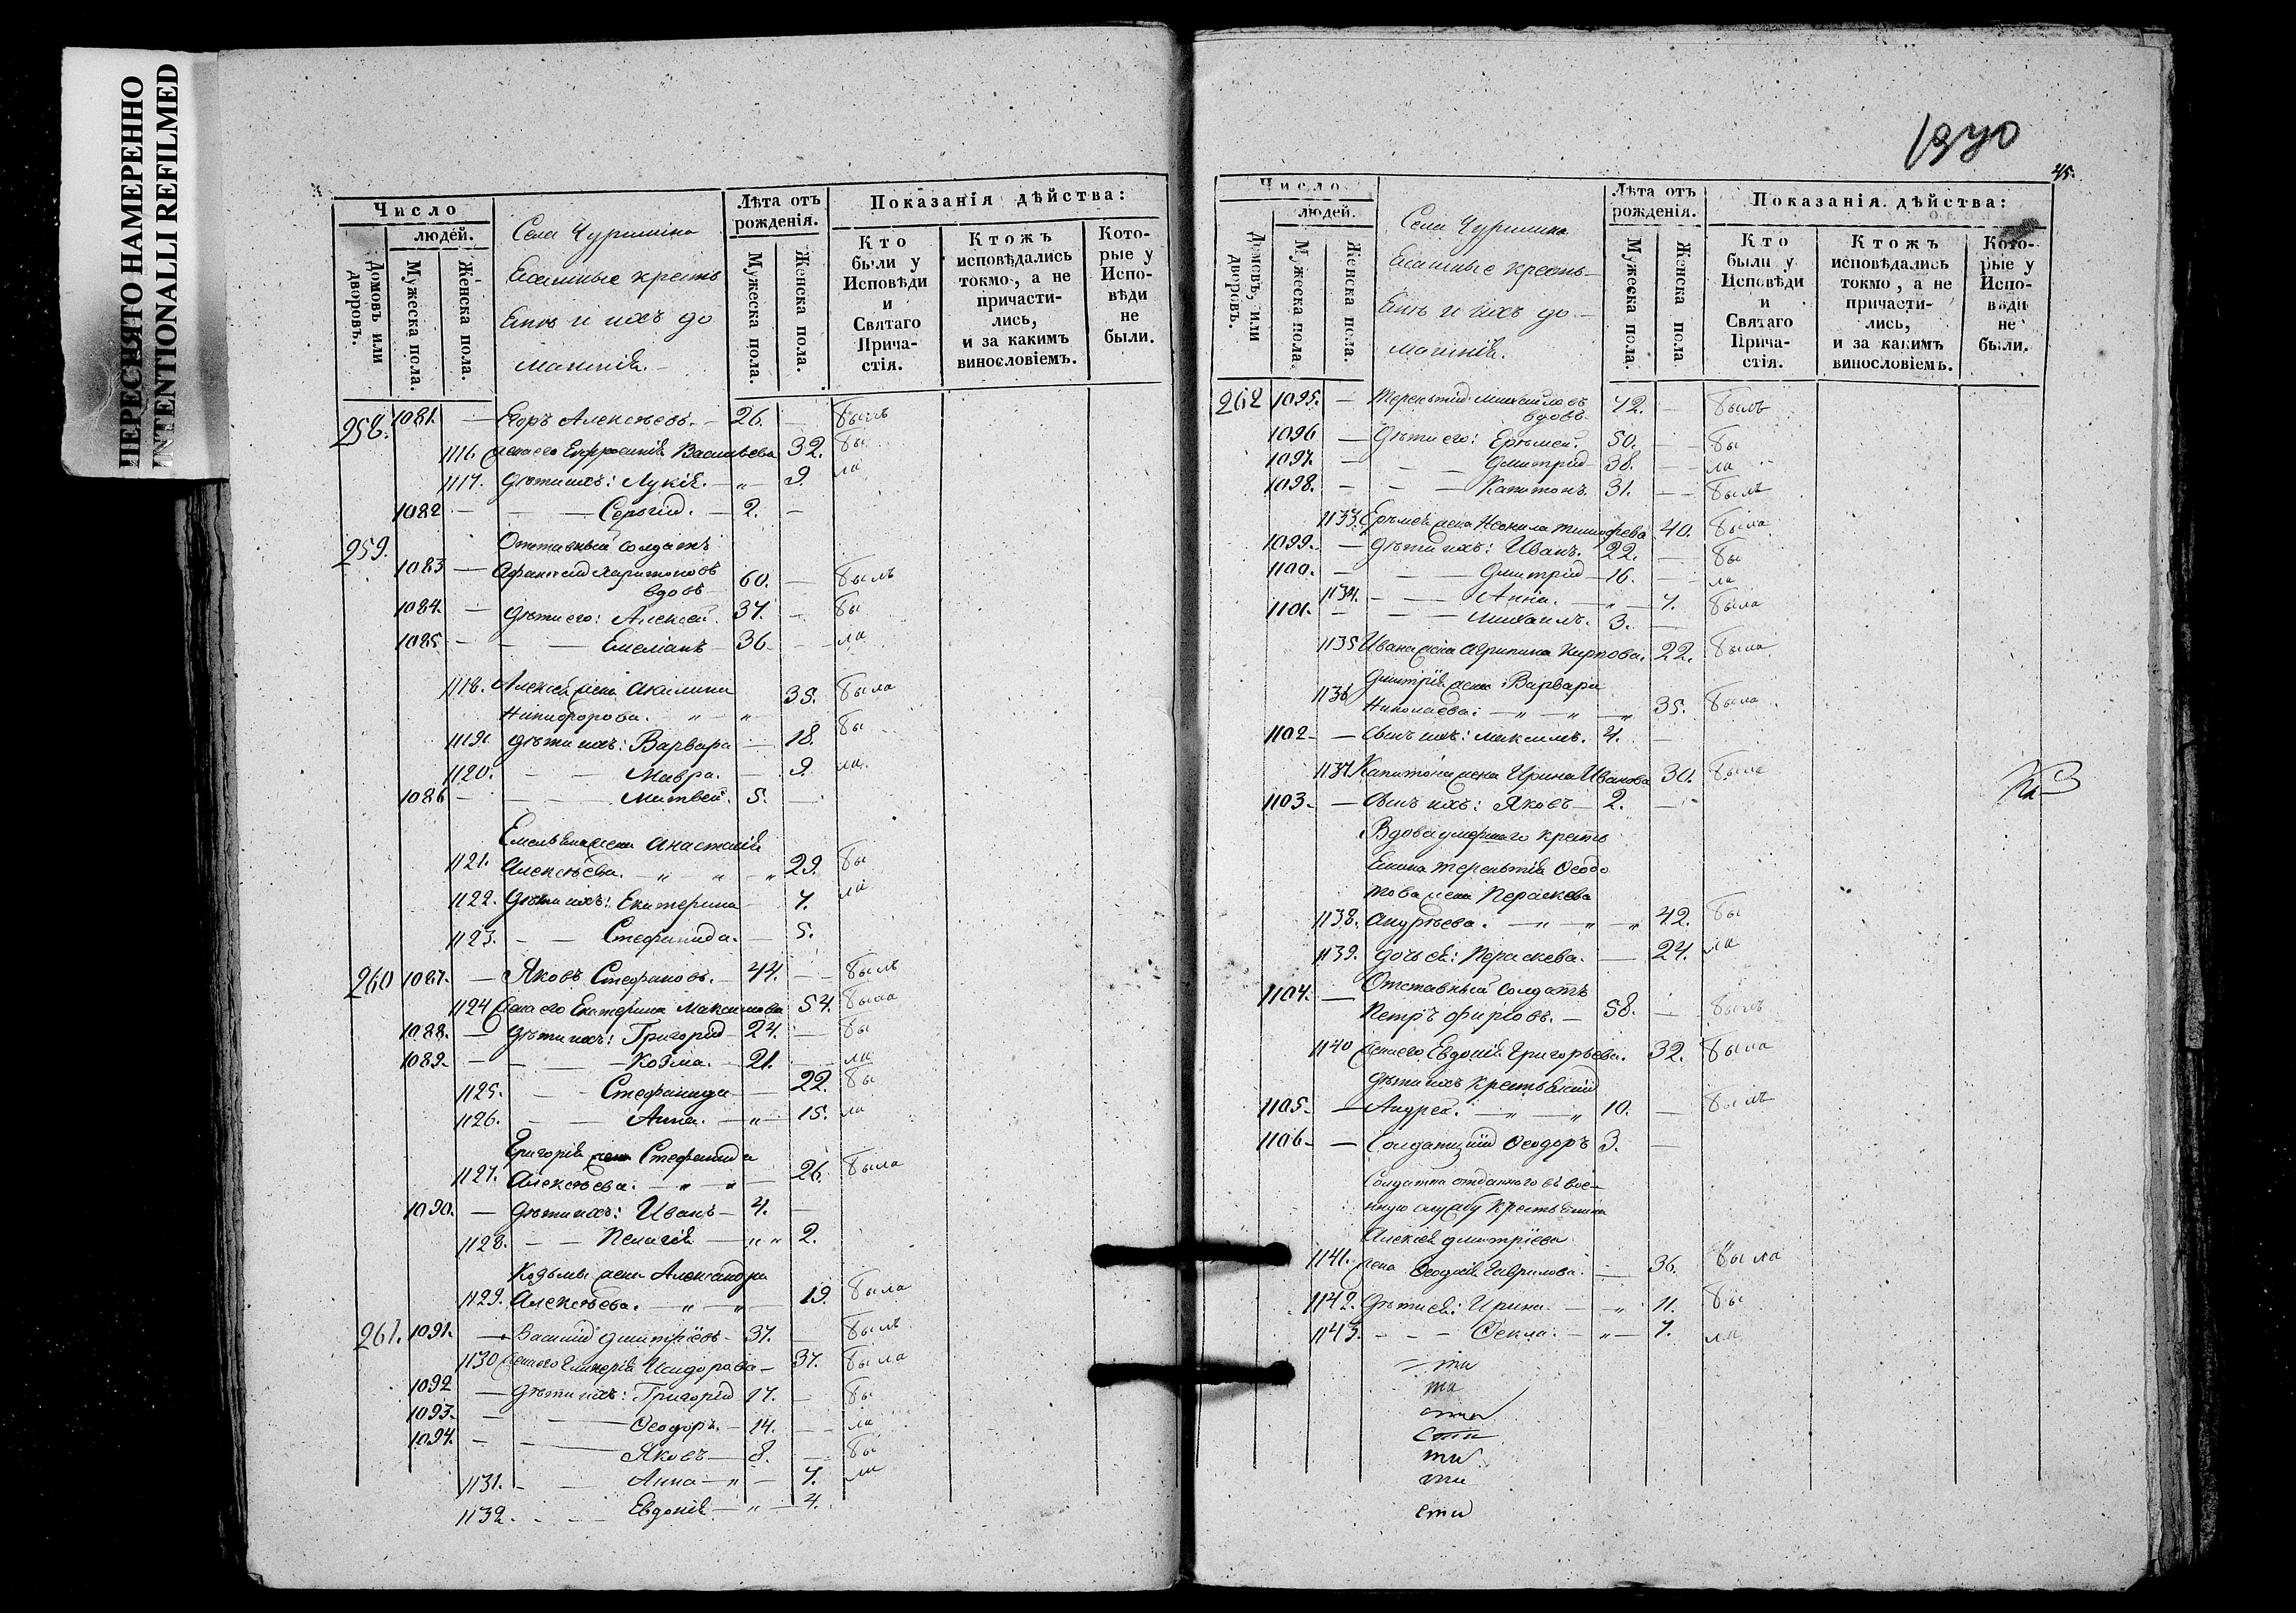 ПЕРЕСНЯТО НАМЕРЕННО
INTENTIONALLI REFILMED
Число
людей.
Домовъ или дворовъ.
Мужеска пола.
Женска пола.
Села Чуришкина
крестья
и ихъ до
машнія.
Лѣта отъ рожденія.
Мужеска пола.
Женска пола.
Показанія дѣйства:
Кто были у Исповѣди и Святаго Причастія.
Ктожъ исповѣдались токмо, а не причастились, и за какимъ винословіемъ.
Которые у Исповѣди не были.
258. 1081. — Егоръ Алексѣевъ. — 26. — былъ
1116 жена его Евфросинія Васильева 32. бы
1117. дѣти ихъ: Лукія. — „ — 9. ла
1082 — — — Сергій. — 2. —
259. Отставный солдатъ
1083 — Афанасій Харитоновъ 60. — былъ
вдовъ
1084. — дѣти его: Алексѣй. 37. — бы
1085 — — — Емеліанъ — 36 — — ла
1118. Алексѣя жена Акилина
Никифорова. — „ — „ 35. была
1119. дѣти ихъ: Варвара — 18. бы
1120. — — Мавра. — 9. ла.
1086 — — — Матвей. 5. —
Емельяна жена Анастасія
1121. Алексѣева. — „ — „ — „ 29. бы
1122. дѣти ихъ: Екатерина — 7. ла
1123. — — Стефанида. — 5.
260 1087. — Яковъ Стефановъ. — 44. — — былъ
1124 жена его Екатерина Максимова 54. была
1088. — дѣти ихъ: Григорій 24. — бы
1089. — — — Козма. — 21. — ла
1125. — — Стефанида — 22. бы
1126. — — Анна. — „ — 15. ла
Григорія жена Стефанида
1127. Алексѣева. — „ — „ — 26. была
1090. — дѣти ихъ: Иванъ — 4. —
1128. — — Пелагія — „ „ 2.
Козьмы жена Александра
1129. Алексѣева. — „ — „ — 19. была
261. 1091. — Василій Дмитріевъ — 37. — былъ
1130 жена его Исидорова — 37. была
1092 — дѣти ихъ: Григорій 17. — бы
1093. — — — Ѳеодоръ. — 14. — — ла
1094. — — — Яковъ — 8. — бы
1131. — — Анна — „ — 7. ла
1132. — — Евдокія — „ — 4.
1970
45.
Число
людей.
Домовъ, или дворовъ.
Мужеска пола.
Женска пола.
Села Чуришкина
крестья-
и ихъ до-
машнія.
Лѣта отъ рожденія.
Мужеска пола.
Женска пола
Показанія дѣйства:
Кто были у Исповѣди и Святаго Причастія.
Ктожъ исповѣдались токмо, а не причастились, и за какимъ винословіемъ.
Которые у Исповѣди не были.
262 1095. — Терентій Михайловъ 72. — былъ
вдовъ
1096 — дѣти его: Еремей. 50. — — бы
1097. — — — Дмитрій — 38. — — ла
1098. — — — Капитонъ. 31. — — былъ
1133. Еремея жена Неонила Тимофеева 40. была
1099. — дѣти ихъ: Иванъ. 22. — бы
1100. — — — Дмитрій — 16. — ла
1134. — — Анна. — „ — 7. была
1101. — — — Михаилъ. 3. —
1135 Ивана жена Агрипина Карпова. 22. была
Дмитрія жена: Варвара
1136 Николаева: — „ — „ — „ 35. была
1102 — — сынъ ихъ: Максимъ. 4. —
1137 Капитона жена Ирина Иванова 30. была
1103 — — сынъ ихъ: Яковъ — 2. —
Вдова умершаго кресть
янина Терентія Ѳеодо
това жена Параскева
1138. Андреева. — „ — „ — „ 42. бы
1139. дочь ея: Параскева. — 24. ла
Отставный солдатъ
1104. — Петръ Фирсовъ. — 58. — былъ
1140 жена его Евдокія Григорьева. 32. была
дѣти ихъ крестьянскій
1105. — Андрей. — „ — „ 10. — былъ
1106 — — Солдатскій Ѳеодоръ 3. —
Солдатка отданнаго въ вое-
нную службу крестьянина
Алексѣя Дмитріева
1141. жена Ѳеодосія Гаврилова. — 36. была
1142. дѣти ея: Ирина. — „ — 11. бы
1143. — — — Ѳекла. — „ — 7. ла